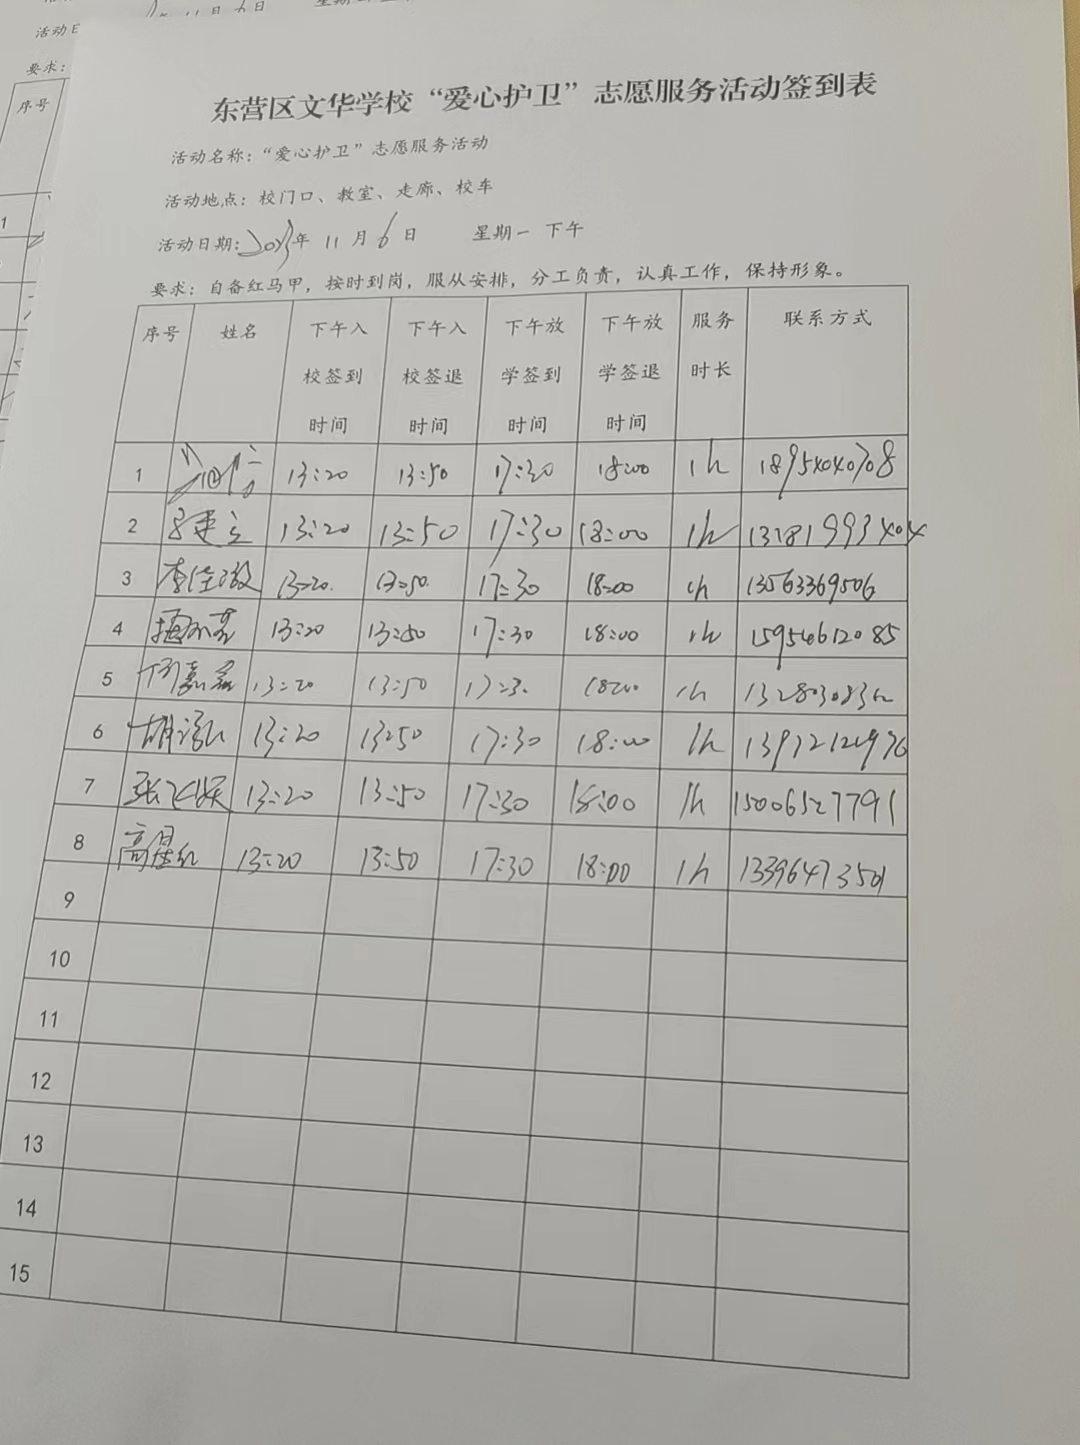 东营区文华学校“爱心护卫”志愿服务活动签到表
活动名称：“爱心护卫”志愿服务活动
活动地点：校门口、教室、走廊、校车
活动日期：2023年 11 月 6 日 星期一 下午
要求：自备红马甲，按时到岗，服从安排，分工负责，认真工作，保持形象。
序号 姓名 下午入校签到时间 下午入校签退时间 下午放学签到时间 下午放学签退时间 服务时长 联系方式
1 13:20 13:50 17:30 18:00 1h 18954040708
2 13:20 13:50 17:30 18:00 1h
3 13:20 13:50 17:30 18:00 1h 13563369506
4 13:20 13:50 17:30 18:00 1h 15954612085
5 13:20 13:50 17:30 18:00 1h
6 13:20 13:50 17:30 18:00 1h
7 13:20 13:50 17:30 18:00 1h 15006527791
8 高星红 13:20 13:50 17:30 18:00 1h 13396473501
9
10
11
12
13
14
15